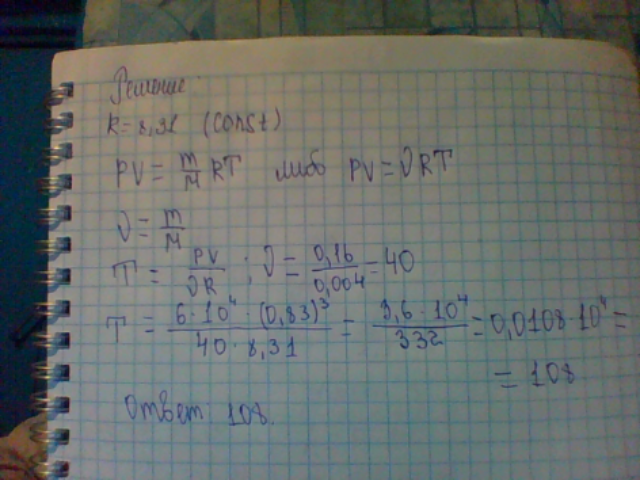 Решение
R = 8,31 (const)
PV = m/M RT либо PV = νRT
ν = m/M
T = PV/νR ; ν = 0,16/0,004 = 40
T = 6·10⁴·(0,83)³/40·8,31 = 3,6·10⁴/332 = 0,0108·10⁴ =
= 108
Ответ: 108.